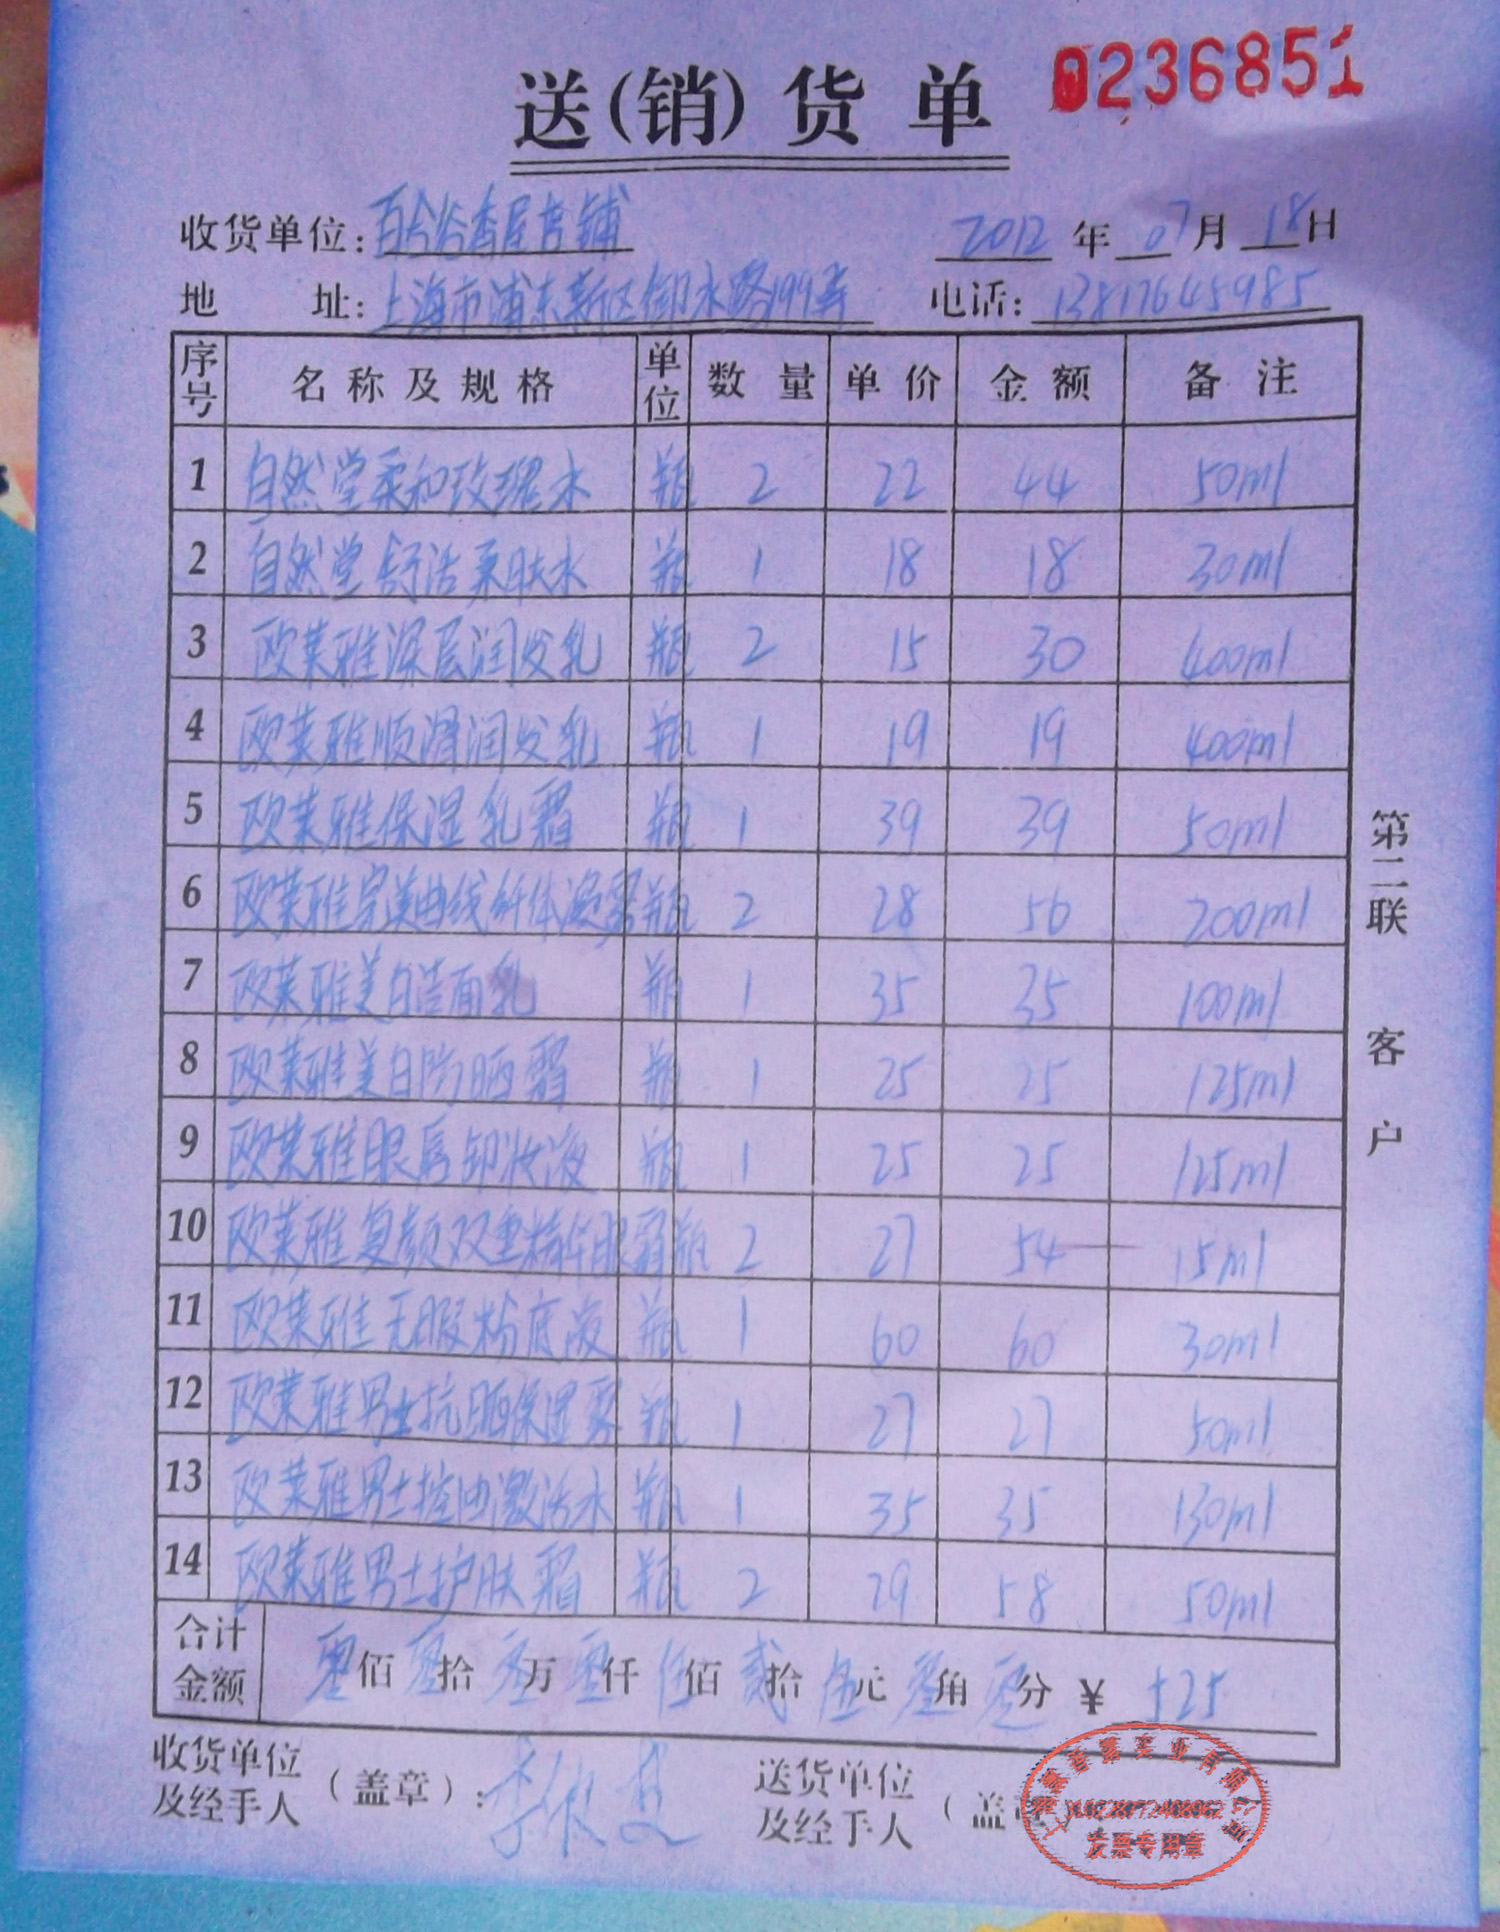 0236851
送(销)货单
收货单位:百合谷香屋店铺 2012年07月18日
地址:上海市浦东新区御水路199弄 电话:13817645985
序号 名称及规格 单位 数量 单价 金额 备注
1 自然堂柔和玫瑰水 瓶 2 22 44 50ml
2 自然堂舒活柔肤水 瓶 1 18 18 30ml
3 欧莱雅深层润发乳 瓶 2 15 30 400ml
4 欧莱雅顺滑润发乳 瓶 1 19 19 400ml
5 欧莱雅保湿乳霜 瓶 1 39 39 50ml
6 欧莱雅完美曲线纤体凝露 瓶 2 28 56 200ml
7 欧莱雅美白洁面乳 瓶 1 35 35 100ml
8 欧莱雅美白防晒霜 瓶 1 25 25 125ml
9 欧莱雅眼唇卸妆液 瓶 1 25 25 125ml
10 欧莱雅复颜双重精华眼霜 瓶 2 27 54 15ml
11 欧莱雅无暇粉底液 瓶 1 60 60 30ml
12 欧莱雅男士抗晒保湿霜 瓶 1 27 27 50ml
13 欧莱雅男士控油激活水 瓶 1 35 35 130ml
14 欧莱雅男士护肤霜 瓶 2 29 58 50ml
合计金额 零佰零拾零万零仟伍佰贰拾伍元零角零分 ¥525
收货单位及经手人(盖章):李
送货单位及经手人(盖
实业有限公司
发票专用章
第二联 客户